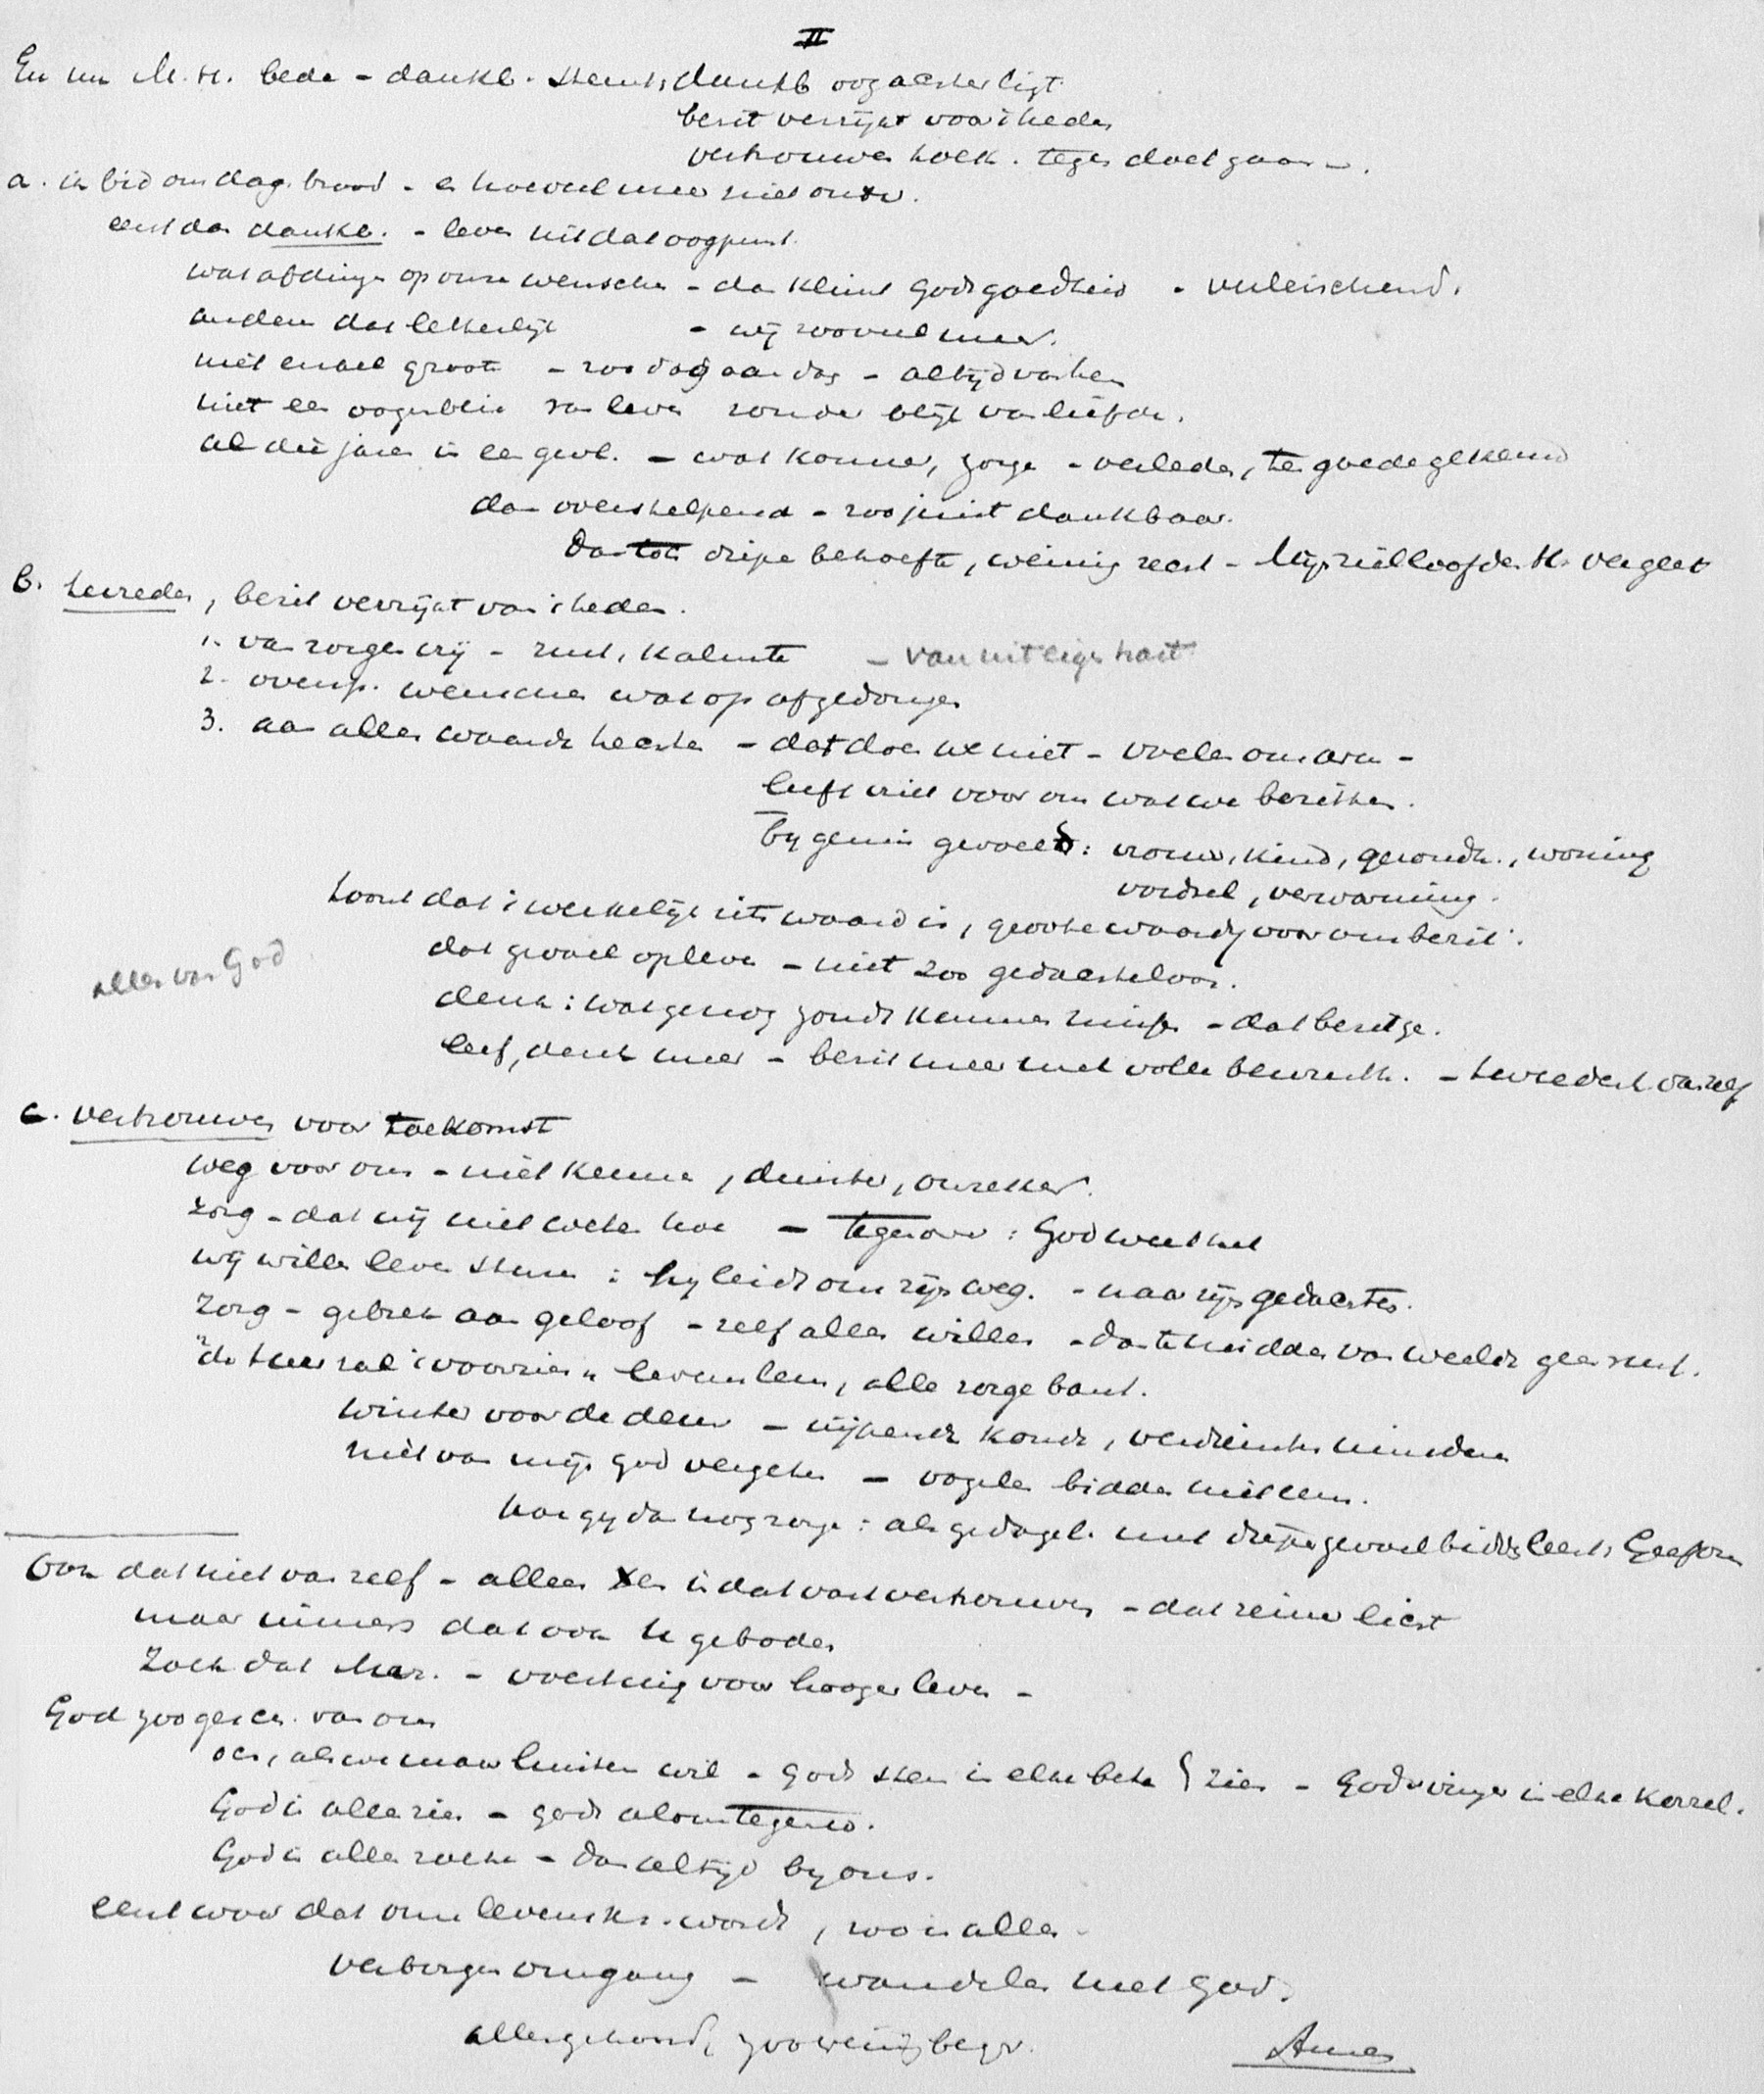 II
En nu M.H. bede - dankb. stemt, dankb oog achter ligt
bezit verrijkt voor 't heden
vertrouwen toek. tegen doet gaan -.
a. ik bid om dag. brood - en hoeveel meer niet ontv.
eerst dan dankb. - leven uit dat oogpunt.
wat afdingen op onze wenschen - dan klimt Gods goedheid - veeleischend.
anderen dat letterlijk - wij zooveel meer.
niet enkel groote - zoo dag aan dag - altijd
niet een oogenblik van leven zonder blijk van liefde.
al die jaren in een gevl. - wat kommer, zorgen - verleden, ten goede gekeerd
dan overstelpend - zoo juist dankbaar.
Dan diepe behoefte, weinig recht - Mijn ziel loof den H. vergeet
b. tevreden, bezit verrijkt van 't heden.
1. van zorgen vrij - rust, kalmte - van uit eigen hart
2. oversp. wenschen wat op afgedongen
3. aan alles waarde hechten - dat doen we niet - voelen ons arm -
leeft niet voor ons wat we bezitten.
bij gemis gevoeld: vrouw, kind, gezondh., woning
voedsel, verwarming.
toont dat 't werkelijk iets waard is, groote waarde voor ons bezit.
dat gevoel opleven - niet zoo gedachteloos.
alles van God
denk: wat ge nog zoudt kunnen missen - dat bezit ge.
leef, denk meer - bezit meer met volle bewusth. - tevredenh. vanzelf
c. vertrouwen voor toekomst
weg voor ons - niet kennen, duister, onzeker.
zorg - dat wij niet weten hoe - tegenover: God weet het
wij willen leven sturen: hij leidt ons zijn weg. - naar zijn gedachten.
Zorg - gebrek aan geloof - zelf alles willen - dan te midden van weelde geen rust.
"de Heer zal 't voorzien" levensleus, alle zorgen bant.
winter voor de deur - nijpende koude,
niet van mijn God vergeten - vogelen bidden niet eens.
hoe gij dan nog zorgen: als ge dagel. met diepe gevoel bidden leert, Geef ons
Ook dat niet van zelf - alleen Xen is dat vast vertrouwen - dat reine licht
maar immers dat ook te geboden
Zoek dat - voeding voor hooger leven -
God zoo gescn. van ons
och, als we maar luisteren wil - Gods stem in elke bete } zien - Gods vinger in elke korrel.
God in alles zien - gods alomtegenw.
God in alles zoeken - dan altijd bij ons.
eerst waar dat ons levensk. wordt, zoo is alles -
verborgen omgang - wandelen met God.
alles gehoord, zoo weinig begr. Amen